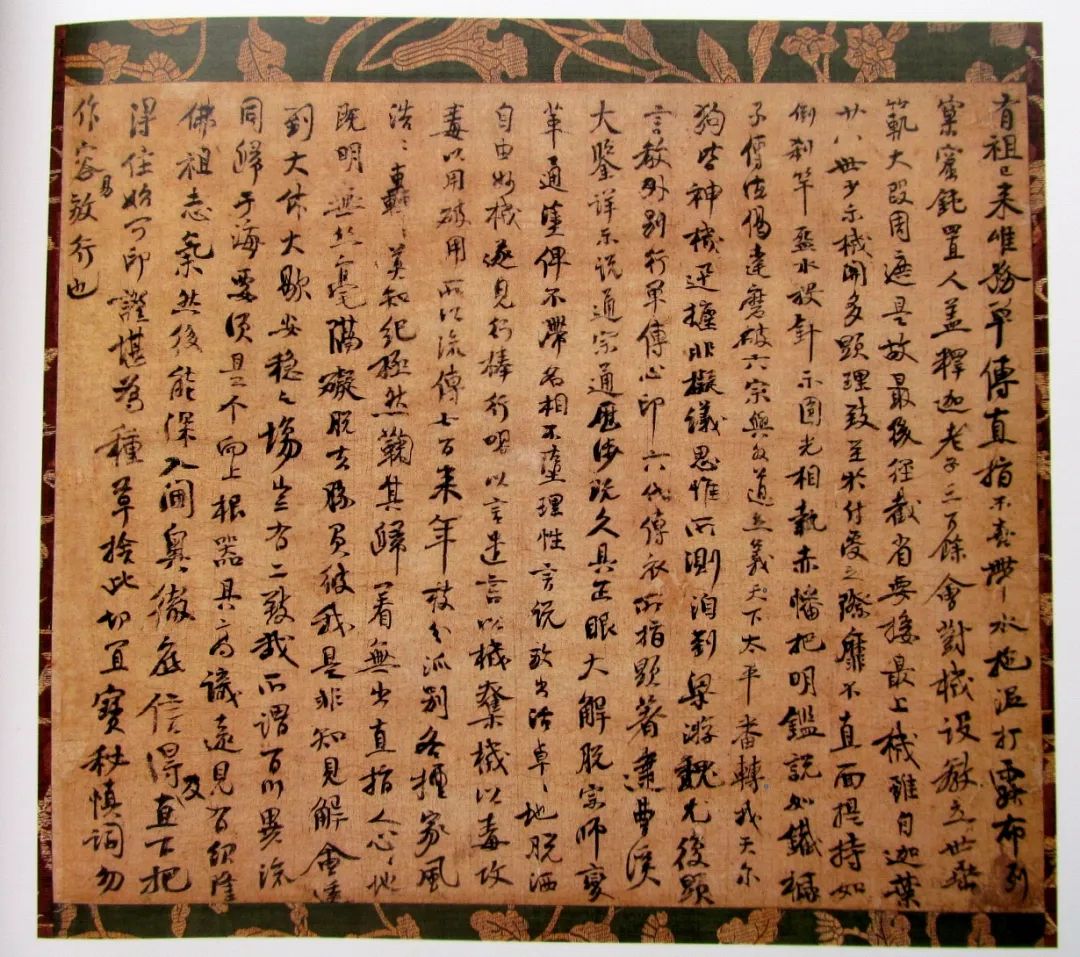 有祖已来唯務單傳直指不喜帶水拖泥打露布列
窠窟鈍置人盖釋迦老子三百餘會對機設教立世垂
範大段周遮是故最後徑截省要接最上機雖自迦葉
廿八世少示機關多顯理致至於付受之際靡不直面提持如
倒刹竿盋水投針示圓光相執赤幡把明鑑説如鐵橛
子傳法偈達磨破六宗與外道立義天下太平番轉我天尔
狗皆神機迅捷非擬議思惟所測洎到梁游魏尤復顯
言教外別行單傳心印六代傳衣所指顯著逮曹溪
大鑒詳示説通宗通歷涉既久具正眼大解脱宗師變
革通塗俾不滯名相不墮理性言説放出活卓〻地脱洒
自由妙機遂見行棒行喝以言遣言以機奪機以毒攻
毒以用破用所以流傳七百来年枝分派別各擅家風
浩〻轟〻莫知紀極然鞠其歸着無出直指人心〻地
既明無丝毫隔礙脱去勝負彼我是非知見解會透
到大休大歇安穩之場豈有二致哉所謂百川異流
同歸于海要須是个向上根器具高識遠見有紹隆
佛祖志氣然後能深入閫奧徹底信得及直下把
得住始可印證堪為種草捨此切宜寶秘慎詞勿
作容易放行也